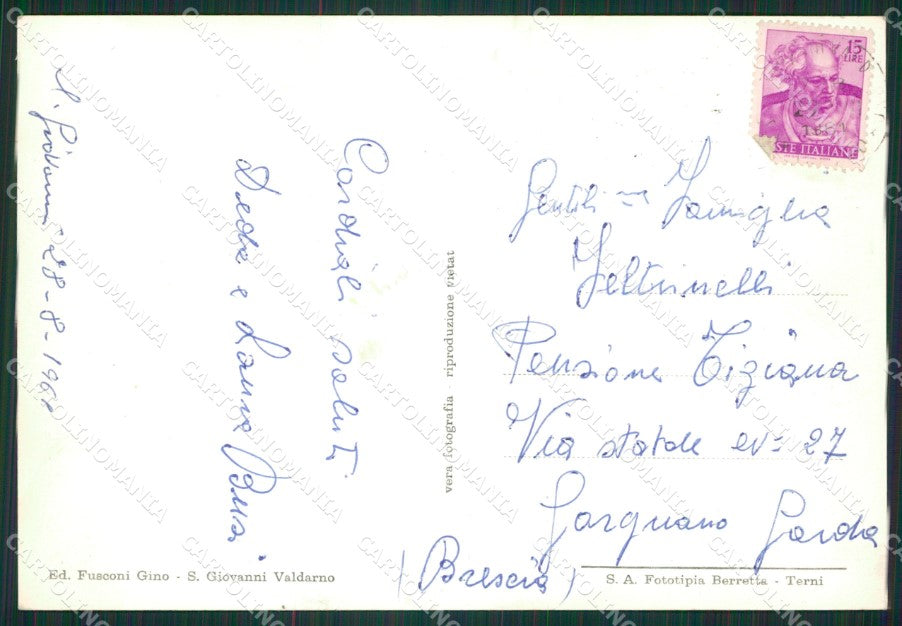 S. Giovanni 28-8-196
Cordiali saluti
Deda e Laura
Gentil.ma Famiglia
Feltrinelli
Pensione Tiziana
Via statale 27
Gargnano Garda
(Brescia)
15
LIRE
POSTE ITALIANE
vera fotografia riproduzione vietat
Ed. Fusconi Gino - S. Giovanni Valdarno
S. A. Fototipia Berretta - Terni
CARTOLINOMANIA